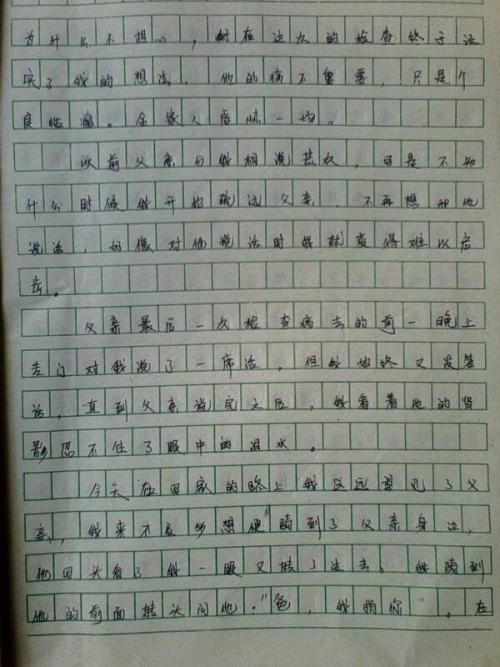 为什么不想……，好在这次的检查终于证
实了我的想法，他的病不重要，只是个
良性瘤。全家人虚惊一场。
以前父亲与我相说甚欢，可是不知
什么时候我开始疏远父亲，不再想和他
说话，好像对他说话时我就变得难以启
齿。
父亲最后一次检查病去的前一晚上
专门对我说了一席话，但我始终又没答
话，直到父亲说完之后，我看着他的背
影忍不住了眼中的泪水。
今天在回家的路上我远远望见了父
亲，我来不及多想便骑到了父亲身边，
他回头看了我一眼又转了过去。我骑到
他的前面转头问他："爸，我捎你"。在